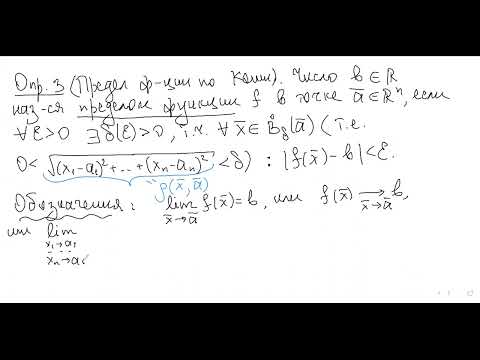 Опр. 3 (Предел ф-ции по Коши). Число b ∈ ℝ
наз-ся пределом функции f в точке ā ∈ ℝⁿ, если
∀ε>0 ∃δ(ε)>0, т.ч. ∀ x̄ ∈ B̊_δ(ā) (т.е.
0< √((x₁-a₁)²+...+(xₙ-aₙ)²) <δ) : |f(x̄)-b|<ε.
"ρ(x̄,ā)
Обозначения: lim f(x̄)=b, или f(x̄) ⟶ b,
x̄→ā x̄→ā
или lim
x₁→a₁
. . . .
xₙ→a